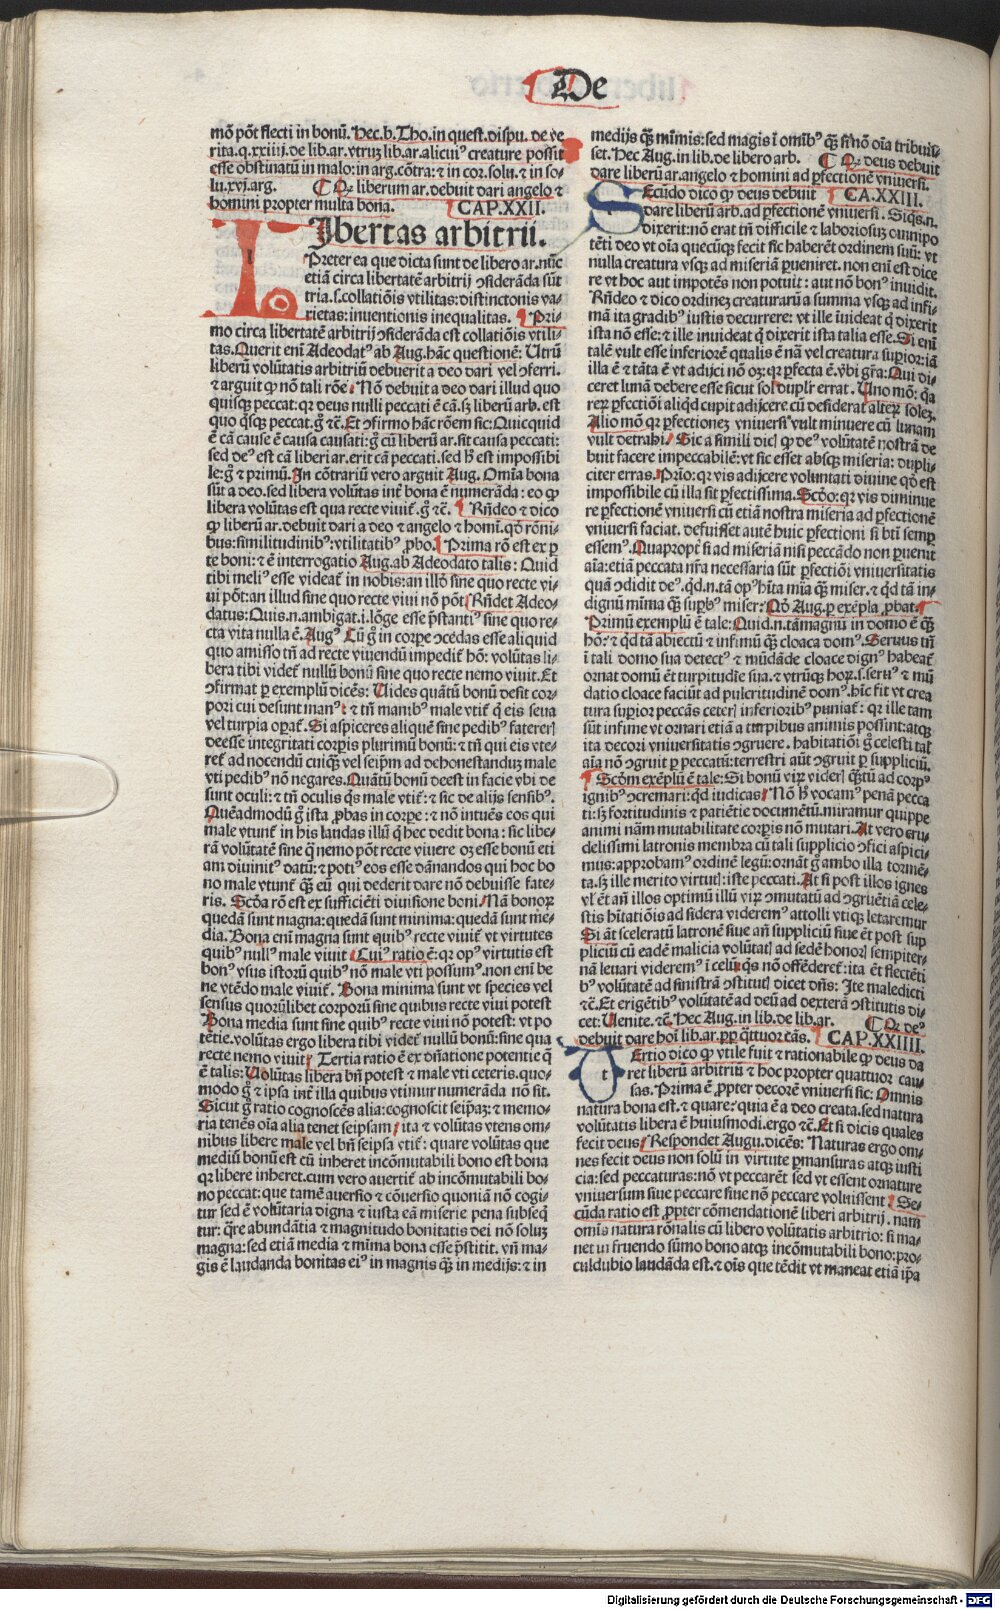 De
mõ põt flecti in bonũ. Hec.b.Tho.in quest.dispu.de ve
rita.q.xxiiij.de lib.ar.vtruȝ lib.ar.alicuiꝰ creature possit
esse obstinatũ in malo:in arg.cõtra:⁊ in cor.solu.⁊ in so-
lu.xvj.arg. ¶ Qꝛ liberum ar.debuit dari angelo ⁊
homini propter multa bona. CAP.XXII.
Libertas arbitrii.
Preter ea que dicta sunt de libero ar.nũc
etiã circa libertatẽ arbitrij ꝯsiderãda sũt
tria.s.collatiõis vtilitas:distinctonis va-
rietas:inuentionis inequalitas. Pri-
mo circa libertatẽ arbitrij ꝯsiderãda est collatiõis vtili-
tas.Querit enĩ Adeodatꝰ ab Aug.hãc questionẽ: Utrũ
liberũ volũtatis arbitriũ debuerit a deo dari vel ꝯferri.
⁊ arguit ꝙ nõ tali rõe. Nõ debuit a deo dari illud quo
quisqȝ peccat:qꝛ deus nulli peccati ẽ cã.sȝ liberũ arb.est
quo q̃sqȝ peccat.g̊ ⁊c̃. Et ꝯfirmo hãc rõem sic:Quicquid
ẽ cã cause ẽ causa causati: g̊ cũ liberũ ar.sit causa peccati:
sed deꝰ est cã liberi ar.erit cã peccati.sed hˢ est impossibi
le:g̊ ⁊ primũ. In cõtrariũ vero arguit Aug. Omĩa bona
sũt a deo.sed libera volũtas int̃ bona ẽ numerãda: eo ꝙ
libera volũtas est qua recte viuit̃.g̊ ⁊c̃. Rñdeo ⁊ dico
ꝙ liberũ ar.debuit dari a deo ⁊ angelo ⁊ homĩ.qđ rõni-
bus:similitudinibꝰ:vtilitatibꝰ ꝓbo. Prima rõ est ex ꝑ
te boni: ⁊ ẽ interrogatio Aug.ab Adeodato talis: Quid
tibi meliꝰ esse videat̃ in nobis:an illđ sine quo recte vi-
ui põt:an illud sine quo recte viui nõ põt Rñdet Adeo-
datus:Quis.n.ambigat.i.lõge esse p̃stantiꝰ sine quo re-
cta vita nulla ẽ.Augꝰ Cũ g̊ in corpe ꝯcedas esse aliquid
quo amisso tñ ad recte viuendũ impedit̃ hõ: volũtas li-
bera tibi videt̃ nullũ bonũ sine quo recte nemo viuit.Et
ꝯfirmat ꝑ exemplũ dicẽs: Uides quãtũ bonũ desit cor-
pori cui desunt manꝰ: ⁊ tñ manibꝰ male vtit̃ q̃ eis seua
vel turpia oꝑat̃. Si aspiceres aliquẽ sine pedibꝰ faterer
deesse integritati corpĩs plurimũ bonũ: ⁊ tñ qui eis vte-
ret̃ ad nocendũ cuiqȝ vel seipm̃ ad dehonestanduȝ male
vti pedibꝰ nõ negares.Quãtũ bonũ deest in facie vbi de
sunt oculi: ⁊ tñ oculis q̃s male vtit̃: ⁊ sic de alijs sensibꝰ.
Quẽadmodũ g̊ ista ꝓbas in corpe: ⁊ nõ intuẽs eos qui
male vtunt̃ in his laudas illũ q̃ hec dedit bona: sic libe-
rã volũtatẽ sine q̃ nemo põt recte viuere oȝ esse bonũ eti
am diuinitꝰ datũ: ⁊ potiꝰ eos esse dãnandos qui hoc bo
no male vtunt̃ q̃ȝ eũ qui dederit dare nõ debuisse fate-
ris. Scđa rõ est ex sufficiẽti diuisione boni. Nã bonoꝝ
quedã sunt magna:quedã sunt minima: quedã sunt me-
dia.Bona enĩ magna sunt quibꝰ recte viuit̃ vt virtutes
quibꝰ nullꝰ male viuit Cuiꝰ ratio ẽ:qꝛ opꝰ virtutis est
bonꝰ vsus istorũ quibꝰ nõ male vti possumꝰ.non enĩ be
ne vtẽdo male viuit̃. Bona minima sunt vt species vel
sensus quorũlibet corporũ sine quibus recte viui potest
Bona media sunt sine quibꝰ recte viui nõ potest: vt po
tẽtie.volũtas ergo libera tibi videt̃ nullũ bonũ:sine qua
recte nemo viuit. Tertia ratio ẽ ex dñatione potentie q̃
ẽ talis: Uolũtas libera bñ potest ⁊ male vti ceteris.quo-
modo g̊ ⁊ ipsa int̃ illa quibus vtimur numerãda nõ sit.
Sicut g̊ ratio cognoscẽs alia:cognoscit seip̃aȝ: ⁊ memo-
ria tenẽs oĩa alia tenet seipsam: ita ⁊ volũtas vtens om-
nibus libere male vel bñ seipsa vtit̃: quare volũtas que
mediũ bonũ est cũ inheret incõmutabili bono est bona
qꝛ libere inheret.cum vero auertit̃ ab incõmutabili bo-
no peccat:que tamẽ auersio ⁊ cõuersio quoniã nõ cogi-
tur sed ẽ volũtaria digna ⁊ iusta eã miserie pena subseq̃
tur: q̃re abundãtia ⁊ magnitudo bonitatis dei nõ soluȝ
magna:sed etiã media ⁊ mĩma bona esse p̃stitit. vñ ma-
gis ẽ laudanda bonitas eiꝰ in magnis q̃ȝ in medijs: ⁊ in
medijs q̃ȝ mĩmis:sed magis ĩ omĩbꝰ q̃ȝ si nõ oĩa tribuis-
set.Hec Aug.in lib.de libero arb. ¶ Qꝛ deus debuit
dare liberũ ar.angelo ⁊ homini ad ꝑfectionẽ vniuersi.
Secũdo dico ꝙ deus debuit CA.XXIII.
dare liberũ arb.ad ꝑfectionẽ vniuersi. Siqs.n.
dixerit:nõ erat tñ difficile ⁊ laboriosuȝ omnipo
tẽti deo vt oĩa quecũqȝ fecit sic haberẽt ordinem suũ: vt
nulla creatura vsqȝ ad miseriã ꝑueniret.non enĩ est dice
re vt hoc aut impotẽs non potuit: aut nõ bonꝰ inuidit.
Rñdeo ⁊ dico ordinẽȝ creaturarũ a summa vsqȝ ad infi-
mã ita gradibꝰ iustis decurrere: vt ille ĩuideat q̃ dixerit
ista nõ esse: ⁊ ille inuideat q̃ dixerit ista talia esse. Si enĩ
talẽ vult esse inferiorẽ qualis ẽ nã vel creatura suꝑior:iã
illa ẽ ⁊ tãta ẽ vt adijci nõ oȝ:qꝛ ꝑfecta ẽ.v̓bi gr̃a: Qui di-
ceret lunã debere esse sicut sol duplr̃ errat. Uno mõ: q̃a
reꝝ ꝑfectiõi aliqđ cupit adijcere cũ desiderat alterꝝ soleȝ.
Alio mõ qꝛ ꝑfectioneȝ vniuersi vult minuere cũ lunam
vult detrahi. Sic a simili dicꝭ ꝙ deꝰ volũtatẽ nostrã de
buit facere impeccabilẽ:vt sic esset absqȝ miseria: dupli-
citer erras. Prĩo: qꝛ vis adijcere voluntati diuine qđ est
impossibile cũ illa sit ꝑfectissima. Scđo: qꝛ vis diminue
re ꝑfectionẽ vniuersi cũ etiã nostra miseria ad ꝑfectionẽ
vniuersi faciat. defuisset autẽ huic ꝑfectioni si bti semꝑ
essemꝰ. Quapropt̃ si ad miseriã nisi peccãdo non ꝑuenit
aĩa:etiã peccata nr̃a necessaria sũt ꝑfectiõi vniuersitatis
quã ꝯdidit deꝰ.qđ.n.tã opꝰ hĩta mĩa q̃ȝ miser. ⁊ qđ tã in-
dignũ mĩma q̃ȝ suꝑbꝰ miser: Qđ Aug.ꝑ exẽpla ꝓbat
Primũ exemplũ ẽ tale: Quid.n.tã magnũ in domo ẽ q̃ȝ
hõ: ⁊ qđ tã abiectũ ⁊ infimũ q̃ȝ cloaca domꝰ. Seruus tñ
ĩ tali domo sua detectꝰ ⁊ mũdãde cloace dignꝰ habeat̃
ornat domũ ẽt turpitudĩe sua. ⁊ vtrũqȝ hoꝝ.s.seruꝰ ⁊ mũ
datio cloace faciũt ad pulcritudinẽ domꝰ. hĩc fit vt crea
tura suꝑior peccãs ceterꝭ inferioribꝰ puniat̃: qꝛ ille tam
sũt infime vt ornari etiã a turpibus animis possint:atqȝ
ita decori vniuersitatis ꝯgruere.habitatiõi g̊ celesti tal̃
aĩa nõ ꝯgruit ꝑ peccatũ: terrestri aũt ꝯgruit ꝑ suppliciũ.
Scđm exẽplũ ẽ tale:Si bonũ viꝝ viderꝭ q̃ȝtũ ad corpꝰ
ignibꝰ ꝯcremari: qđ iudicas. Nõ hˢ vocamꝰ penã pecca
ti:sȝ fortitudinis ⁊ patiẽtie documẽtũ.miramur quippe
animi nãm mutabilitate corpĩs nõ mutari. At vero cru-
delissimi latronis membra cũ tali supplicio ꝯfici aspici-
mus:approbamꝰ ordinẽ legũ: ornãt g̊ ambo illa tormẽ-
ta.sȝ ille merito virtutꝭ:iste peccati.At si post illos ignes
vl̃ ẽt añ illos optimũ illũ viꝝ ꝯmutatũ ad ꝯgruẽtiã cele-
stis hĩtatiõis ad sidera videremꝰ attolli vtiqȝ letaremur
Si aũt sceleratũ latronẽ siue añ suppliciũ siue ẽt post sup
pliciũ cũ eadẽ malicia volũtatꝭ ad sedẽ honorꝭ sempiter-
nã leuari viderem̃ ĩ celũ:q̃s nõ offẽderet̃:ita ẽt flectẽti
bꝰ volũtatẽ ad sinistrã ꝯstitutꝭ dicet dñs: Ite maledicti
⁊c̃. Et erigẽtibꝰ volũtatẽ ad deũ ad dexterã ꝯstitutis di-
cet: Uenite.⁊c̃. Hec Aug.in lib.de lib.ar. ¶ Qꝛ deꝰ
debuit dare hoĩ lib.ar.ꝓꝑ q̃ttuor cãs. CAP.XXIIII.
Tertio dico ꝙ vtile fuit ⁊ rationabile ꝙ deus da
ret liberũ arbitriũ ⁊ hoc propter quattuor cau-
sas. Prima ẽ ꝓpter decorẽ vniuersi sic: Omnis
natura bona est. ⁊ quare: quia ẽ a deo creata.sed natura
volũtatis libera ẽ huiusmodi.ergo ⁊c̃. Et si dicis quales
fecit deus. Respondet Augu.dicẽs: Naturas ergo om-
nes fecit deus non solũ in virtute ꝑmansuras atqȝ iusti
cia:sed peccaturas:nõ vt peccarẽt sed vt essent ornature
vniuersum siue peccare siue nõ peccare voluissent Se-
cũda ratio est ꝓpter cõmendationẽ liberi arbitrij.nam
omĩs natura rõnalis cũ libero volũtatis arbitrio: si ma-
net in fruendo sũmo bono atqȝ incõmutabili bono:pro-
culdubio laudãda est. ⁊ oĩs que tẽdit vt maneat etiã ip̃a
Digitalisierung gefördert durch die Deutsche Forschungsgemeinschaft - DFG